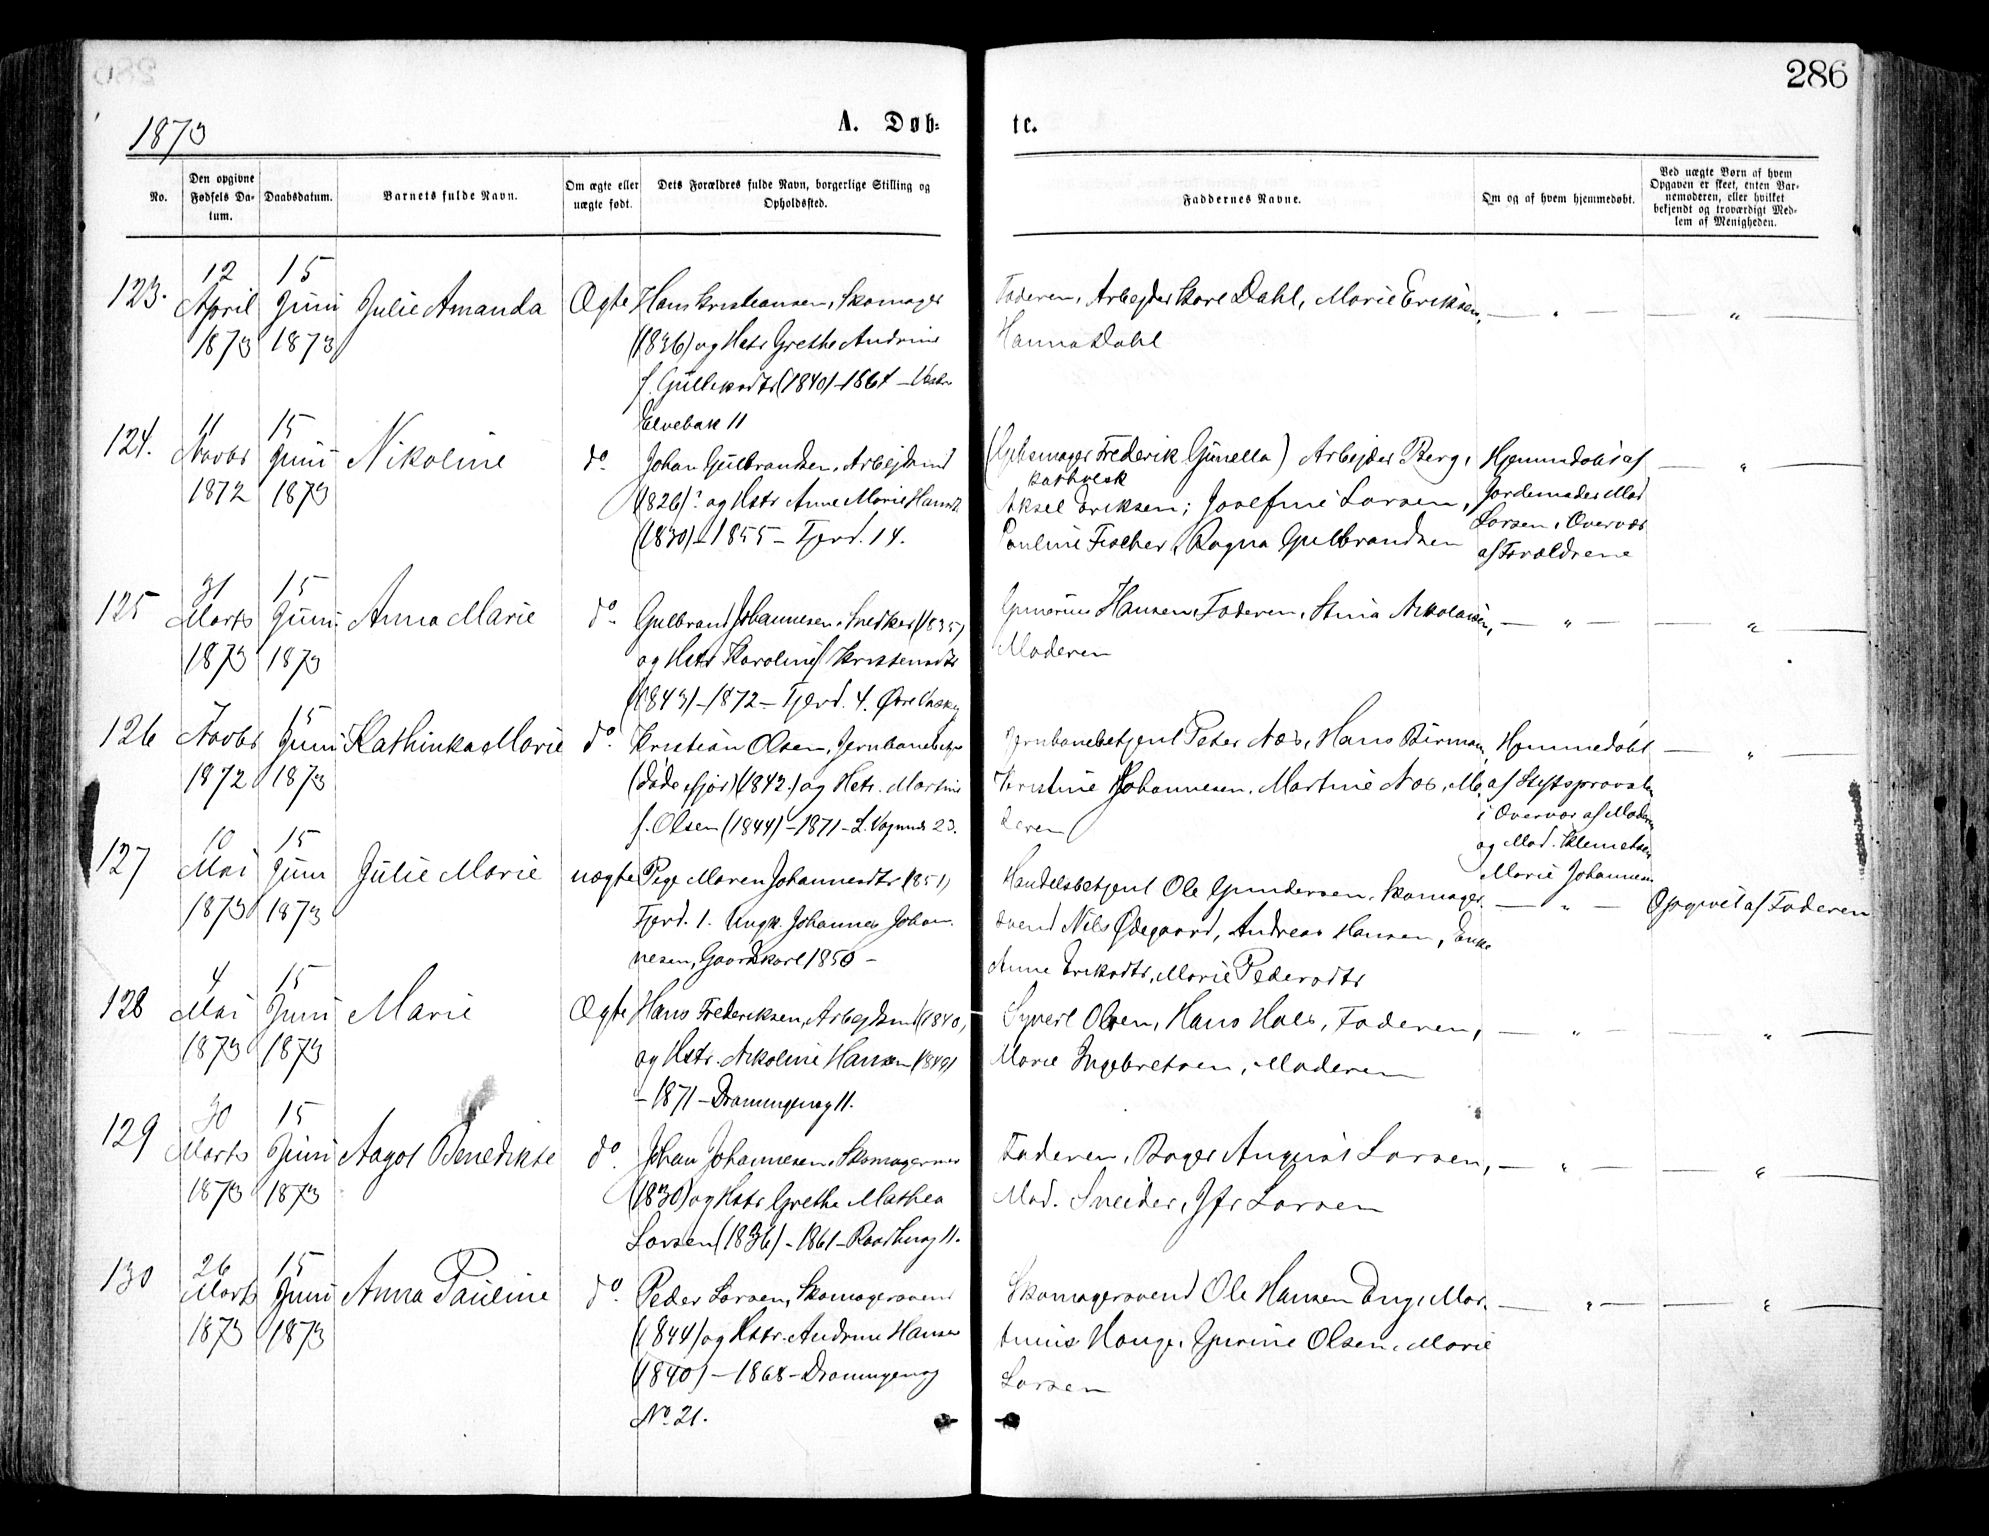 286
1873
A. Døb-
te.
No.
Den opgivne Fødsels Da-tum.
Daabsdatum.
Barnets fulde Navn.
Om ægte eller uægte født.
Dets Forældres fulde Navn, borgerlige Stilling og Opholdssted.
Faddernes Navne.
Om og af hvem hjemmedøbt.
Ved uægte Børn af hvem Opgaven er skeet, enten Bar-nemoderen, eller hvilket bekjendt og troværdigt Med-lem af Menigheden.
123. 12 April 1873 15 Juni 1873 Julie Amanda Ægte
Hans Kristiansen, Skomager
(1836) og Hstr Grethe Andrine
f. Gulliksdtr (1840) - 1864 - Vestre
Elvebak 11
Faderen, Arbejder Karl Dahl, Marie Eriksen,
Hanna Dahl
124. 11 Novbr 1872 15 Juni 1873 Nikoline do.
Johan Gulbrandsen, Arbejdsmd
(1826) og Hstr Anne Marie Hansd.
(1830) - 1855 - Fjerd. 14.
(Gjibsmager Frederik Gunella) Arbejder Berg,
katholsk
Aksel Eriksen; Josefine Larsen,
Pauline Fischer, Ragna Gulbrandsen
Hjemmedøbt af
Jordemoder Mad
Larsen, Overvær
af Forældrene
125 31 Marts 1873 15 Juni 1873 Anna Marie do.
Gulbrand Johannesen, Snedker (1835)
og Hstr Karoline f. Kristensdtr
(1843) - 1872 - Fjerd. 4. Øvre
Gunerius Hansen, Faderen, Stina Nikolaisen,
Moderen
126 7 Novbr 1872 15 Juni 1873 Kathinka Marie do.
Kristian Olsen, Jernbanebetjt
(1842) og Hstr. Martine
f. Olsen (1844) - 1871 - L. Vognmdr 23.
Jernbanebetjent Peter Næs, Hans Birman,
Kristine Johannesen, Martine Næs, Mo-
deren
Hjemmedøbt
af Stiftsprovsten
i Overvær af Moderen
og Mad. Klemetsen
Marie Johannesen
127 10 Mai 1873 15 Juni 1873 Julie Marie uægte
Pige Maren Johannesdtr (1851)
Fjerd. 1. Ungk. Johannes Johan-
nesen, Gaardskarl 1850 -
Handelsbetjent Ole Gundersen, Skomager-
svend Nils Ødegaard, Andreas Hansen, Enke
Anne Eriksdtr, Marie Pedersdtr
Opgivet af Faderen
128 4 Mai 1873 15 Juni 1873 Marie Ægte
Hans Frederiksen, Arbejdsmd (1840)
og Hstr. Nikoline Hansen (1849)
- 1871 - Drammengevej 11.
Syvert Olsen, Hans Hals, Faderen,
Marie Ingebretsen, Moderen
129 30 Marts 1873 15 Juni 1873 Aagot Benedikte do.
Johan Johannesen, Skomagersv
(1830) og Hstr Grethe Mathea
Larsen (1836) - 1861 - Raadhusg 11.
Faderen, Bager August Larsen,
Mad. Sneider, Jfr Larsen
130 26 Marts 1873 15 Juni 1873 Anna Pauline do.
Peder Larsen, Skomagersvend
(1844) og Hstr. Andrine Hansen
(1840) - 1868 - Drammengevej
No. 21.
Skomagersvend Ole Hansen Eng, Mar-
tinius Hauge, Gurine Olsen, Marie
Larsen